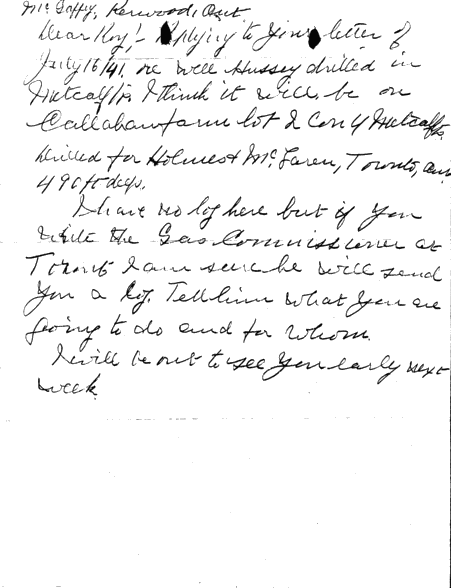 Mc Gaffy, Kerwood, Ont
Dear Roy,- Replying to your letter of
July 16/41, re well Hussey drilled in
Metcalf Tp I think it will be on
Callahan farm lot 2 Con 4 Metcalf
Drilled for Holmes & McLaren, Toronto,
490 ft deep.
I have no log here but if you
write the Gas Commissioner at
Toronto I am sure he will send
you a log. Tell him what you are
going to do and for whom.
I will be out to see you early next
week